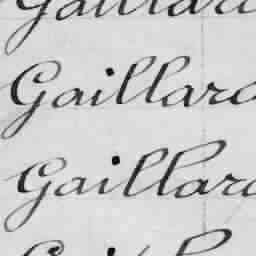 Gaillard
Gaillard
Gaillard